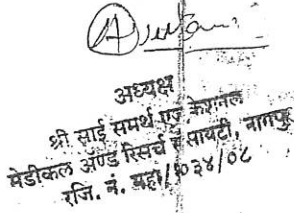 अध्यक्ष
श्री साई समर्थ एज्युकेशनल
मेडीकल अॅण्ड रिसर्च सोसायटी, नागपुर
रजि. नं. महा/१०३४/०८